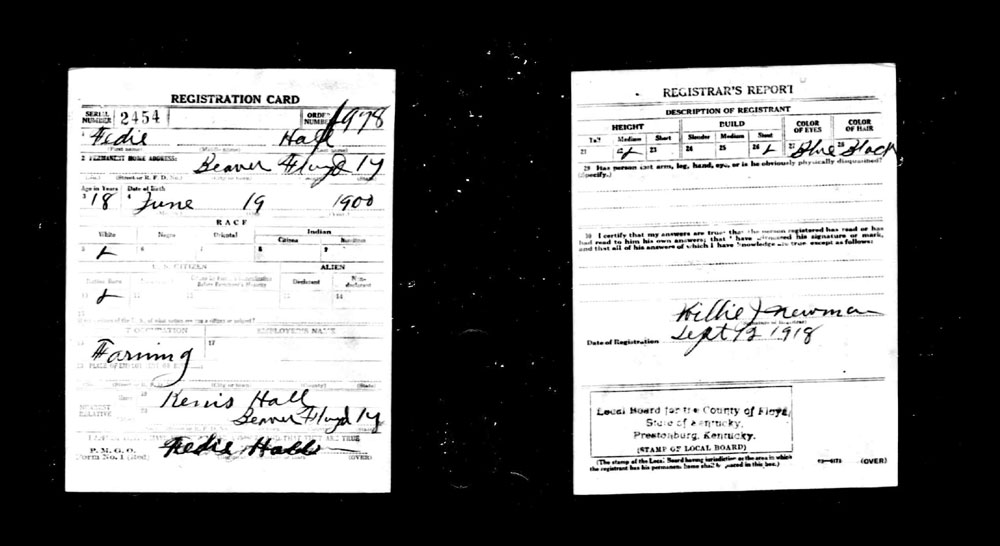 REGISTRATION CARD
SERIAL NUMBER 2454 ORDER NUMBER 1978
Fedie Hall
(First name) (Middle name) (Last name)
2 PERMANENT HOME ADDRESS:
Beaver Floyd Ky
(No.) (Street or R. F. D. No.) (City or town) (State)
Age in Years Date of Birth
3 18 4 June 19 1900
RACE
White Negro Oriental Indian
Citizen Noncitizen
5 6 7 8 9
U. S. CITIZEN ALIEN
Native Born Declarant Non-declarant
11 12 13 14
15
OCCUPATION EMPLOYER'S NAME
16 17
Farming
18 PLACE OF EMPLOYMENT OR BUSINESS
(Street or R. F. D. No.) (City or town) (County) (State)
NEAREST RELATIVE
Name 19 Kenis Hall
20 Beaver Floyd Ky
P. M. G. O.
Form No. 1 (Red) Fedie Halls (OVER)
REGISTRAR'S REPORT
DESCRIPTION OF REGISTRANT
HEIGHT BUILD COLOR OF EYES COLOR OF HAIR
Tall Medium Short Slender Medium Stout
21 23 24 25 26 27 Blue 28 Black
29 Has person lost arm, leg, hand, eye, or is he obviously physically disqualified?
(Specify.)
30 I certify that my answers are true; that the person registered has read or has
had read to him his own answers; that I have witnessed his signature or mark,
and that all of his answers of which I have knowledge are true, except as follows:
Killie J Newman
(Signature of Registrar)
Date of Registration Sept 12 1918
Local Board for the County of Floyd,
State of Kentucky,
Prestonburg, Kentucky.
(STAMP OF LOCAL BOARD)
(The stamp of the Local Board having jurisdiction of the area in which
the registrant has his permanent home shall be placed in this box.)
03—6171 (OVER)